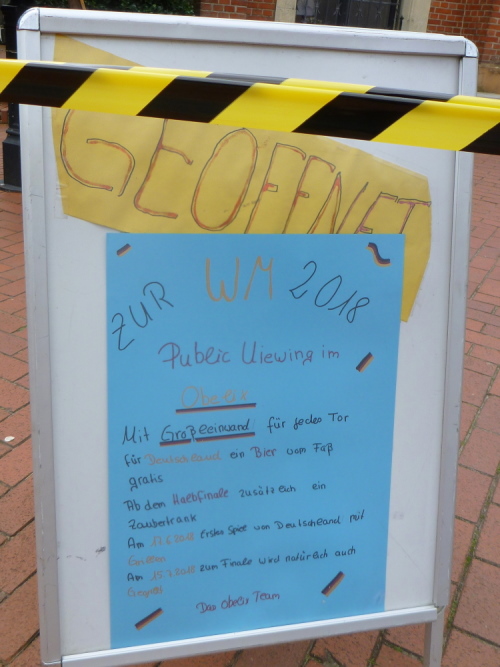 GEÖFFNET
ZUR WM 2018
Public Viewing im
Obelix
Mit Großleinwand für jedes Tor
für Deutschland ein Bier vom Faß
gratis
Ab dem Halbfinale zusätzlich ein
Zaubertrank
Am 17.6.2018 erstes Spiel von Deutschland mit
Grillen
Am 15.7.2018 zum Finale wird natürlich auch
Gegrillt
Das Obelix Team